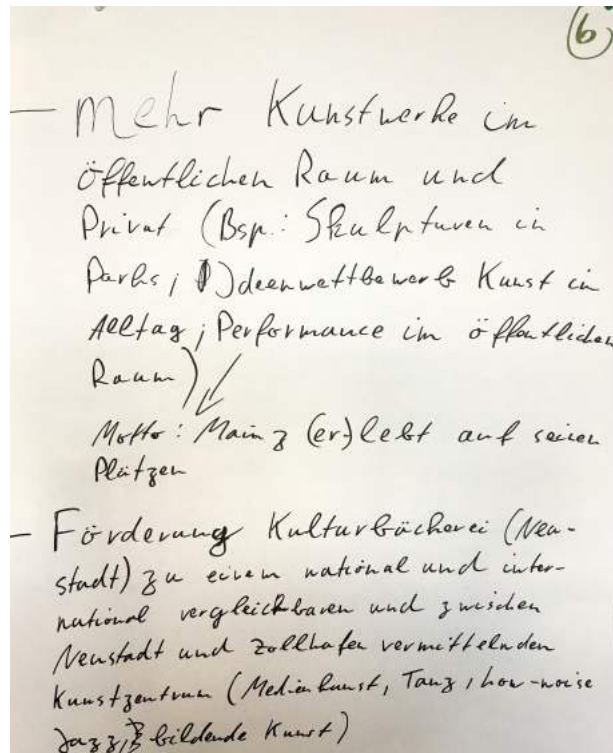 6
– Mehr Kunstwerke im
öffentlichen Raum und
Privat (Bsp.: Skulpturen in
Parks; Ideenwettbewerb Kunst in
Alltag; Performance im öffentlichen
Raum)
Motto: Mainz (er-)lebt auf seinen
Plätzen
– Förderung Kulturbäckerei (Neu-
stadt) zu einem national und inter-
national vergleichbaren und zwischen
Neustadt und Zollhafen vermittelnden
Kunstzentrum (Medienkunst, Tanz,
Jazz, bildende Kunst)